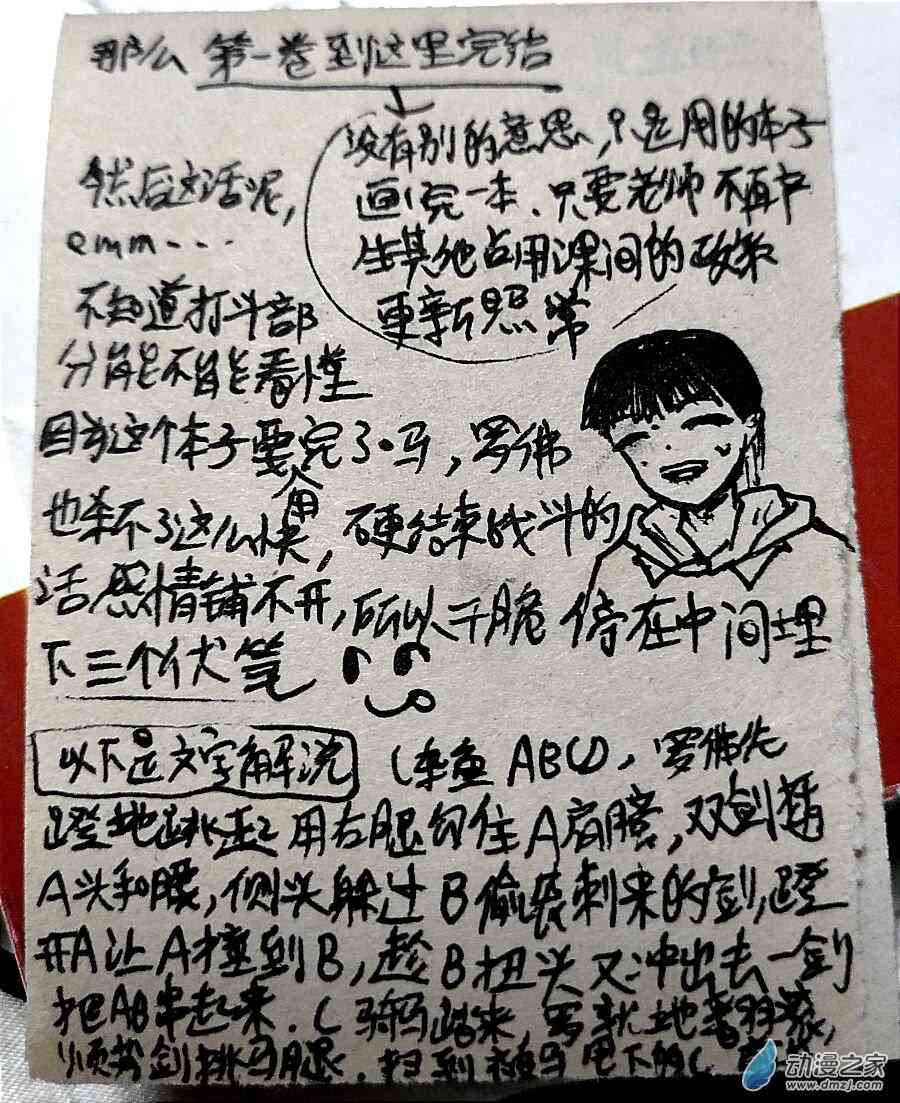 那么 第一卷到这里完结
没有别的意思,只是用的本子
画完一本.只要老师不再产
生其他占用课间的政策
更新照常
然后这话呢,
emm...
不知道打斗部
分能不能看懂
因为这个本子要用完了吗,罗佛
也杀不了这么快,硬结束战斗的
话感情铺不开,所以干脆停在中间埋
下三个伏笔
以下是文字解说 (杂鱼ABC),罗佛先
蹬地跳起用右腿勾住A肩膀,双剑插
A头和腰,侧头躲过B偷袭刺来的剑,蹬
开A让A撞到B,趁B扭头又冲出去一剑
把AB串起来.C骑马踏来,罗就地
顺势剑挑马腿.
动漫之家
www.dmzj.com